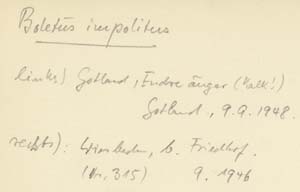 Boletus impolitus
links) Gotland, Endre änger (Kalk!)
Gotland, 9.9.1948.
rechts): Wiesbaden, b. Friedhof.
(Nr. 315) 9. 1946